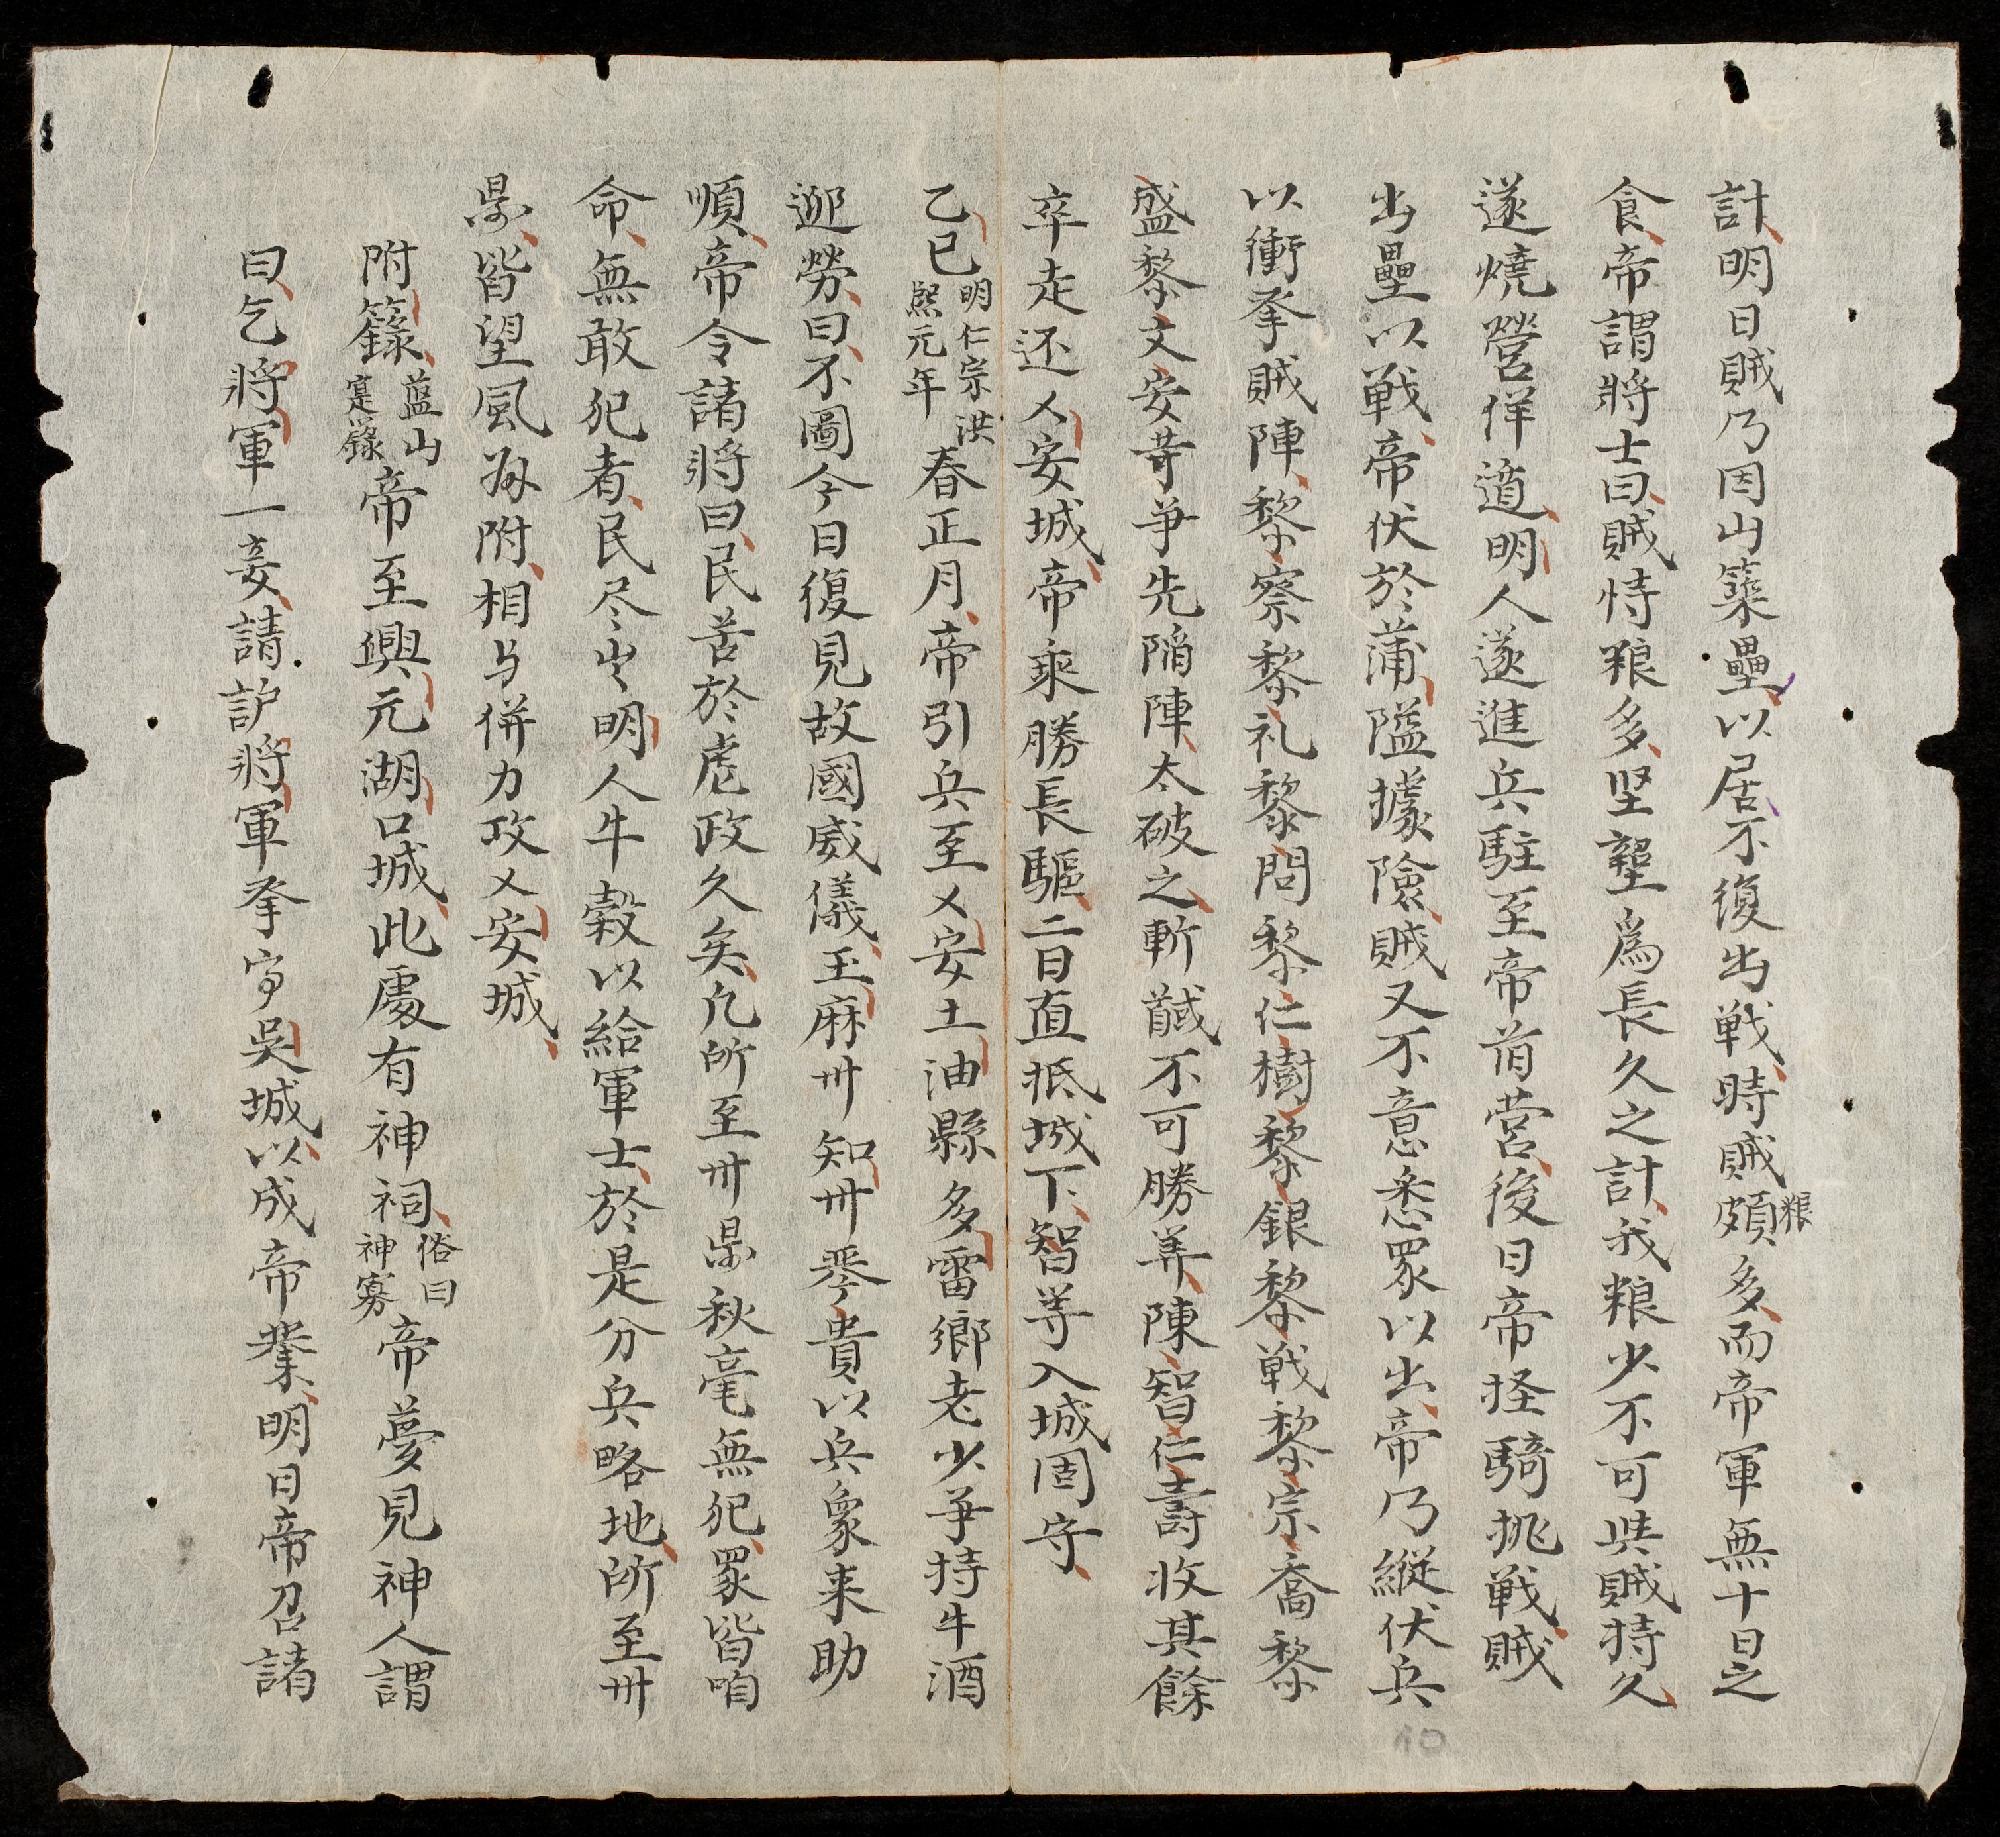 計明日賊乃因山築壘以居不復出戦時賊粮頗多而帝軍無十日之
食帝謂將士曰賊恃粮多坚壁爲長久之計我粮少不可与賊持久
遂燒營佯遁明人遂進兵駐至帝前营後日帝招騎挑戦賊
出壘以戦帝伏於蒲隘據險賊又不意悉眾以出帝乃縦伏兵
以衝拳賊陣黎察黎礼黎問黎仁樹黎銀黎戦黎宗喬黎
盛黎文安䓁争先陷陣太破之斬馘不可勝筭陳智仁壽收其餘
卒走还乂安城帝乘勝長驅二日直抵城下智等入城固守
乙巳明仁宗洪熙元年春正月帝引兵至乂安土油縣多雷鄉老少争持牛酒
迎勞曰不圖今日復見故國威儀玉麻州知州琴貴以兵象来助
順帝令諸將曰民苦於虐政久矣凡所至州县秋毫無犯眾皆咱
命無敢犯者民尽出明人牛穀以給軍士於是分兵略地所至州
县皆望風归附相与併力攻乂安城
附籙藍山寔籙帝至興元湖口城此處有神祠俗曰神寡帝夢見神人謂
曰乞將軍一妾請护將軍拳守吳城以成帝業明日帝召諸